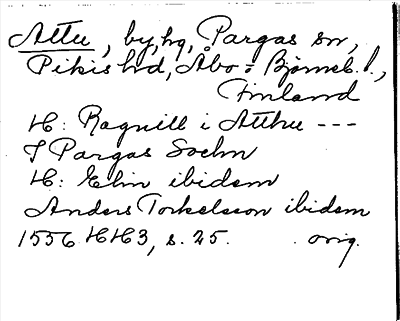 Attu, by, hg, Pargas sn,
Pikis hd, Åbo o Bjørneb. l.,
Finland
H: Ragnill i Atthu ---
I Pargas Sochn
H: Elin ibidem
Anders Torkelsson ibidem
1556 HH3, s. 25. orig.